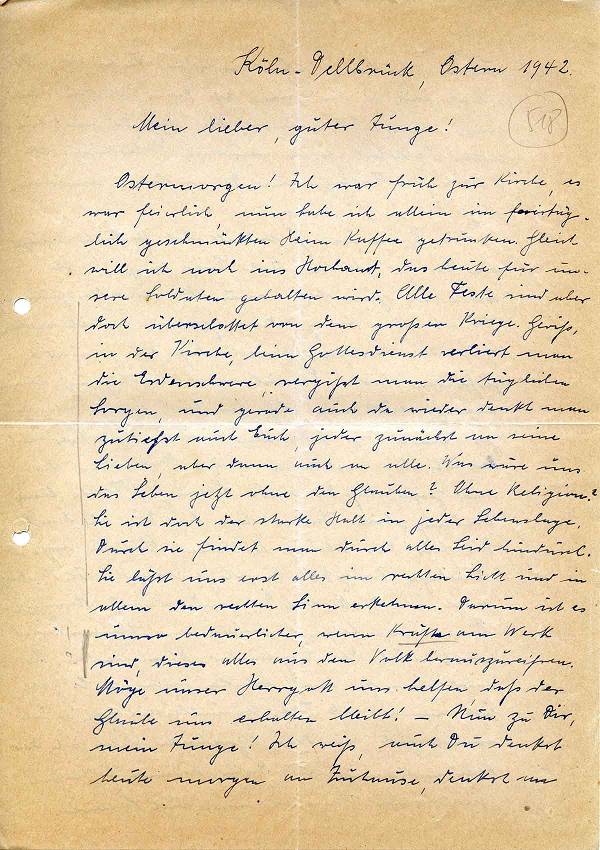 Köln-Dellbrück, Ostern 1942.
518
Mein lieber, guter Junge!
Ostermorgen! Ich war früh zur Kirche, es
war feierlich, nun habe ich allein im feiertäg-
lich geschmückten Heim Kaffee getrunken. Gleich
will ich noch ins Hochamt, das heute für un-
sere Soldaten gehalten wird. Alle Feste sind aber
doch überschattet von dem großen Kriege. Gewiß,
in der Kirche, beim Gottesdienst verliert man
die Erdenschwere, vergißt man die täglichen
Sorgen, und gerade auch da wieder denkt man
zutiefst auch Euch, jeder zunächst an seine
Lieben, aber dann auch an alle. Was wäre uns
das Leben jetzt ohne den Glauben? Ohne Religion?
Sie ist doch der starke Halt in jeder Lebenslage.
Durch sie findet man durch alles Leid hindurch.
Sie läßt uns erst alles im rechten Licht und in
allem den rechten Sinn erkennen. Darum ist es
umso bedauerlicher, wenn Kräfte am Werk
sind, dieses alles aus dem Volk herauszureißen.
Möge unser Herrgott uns helfen, daß der
Glaube uns erhalten bleibt! – Nun zu Dir,
mein Junge! Ich weiß, auch Du denkst
heute morgen an Zuhause, denkst an